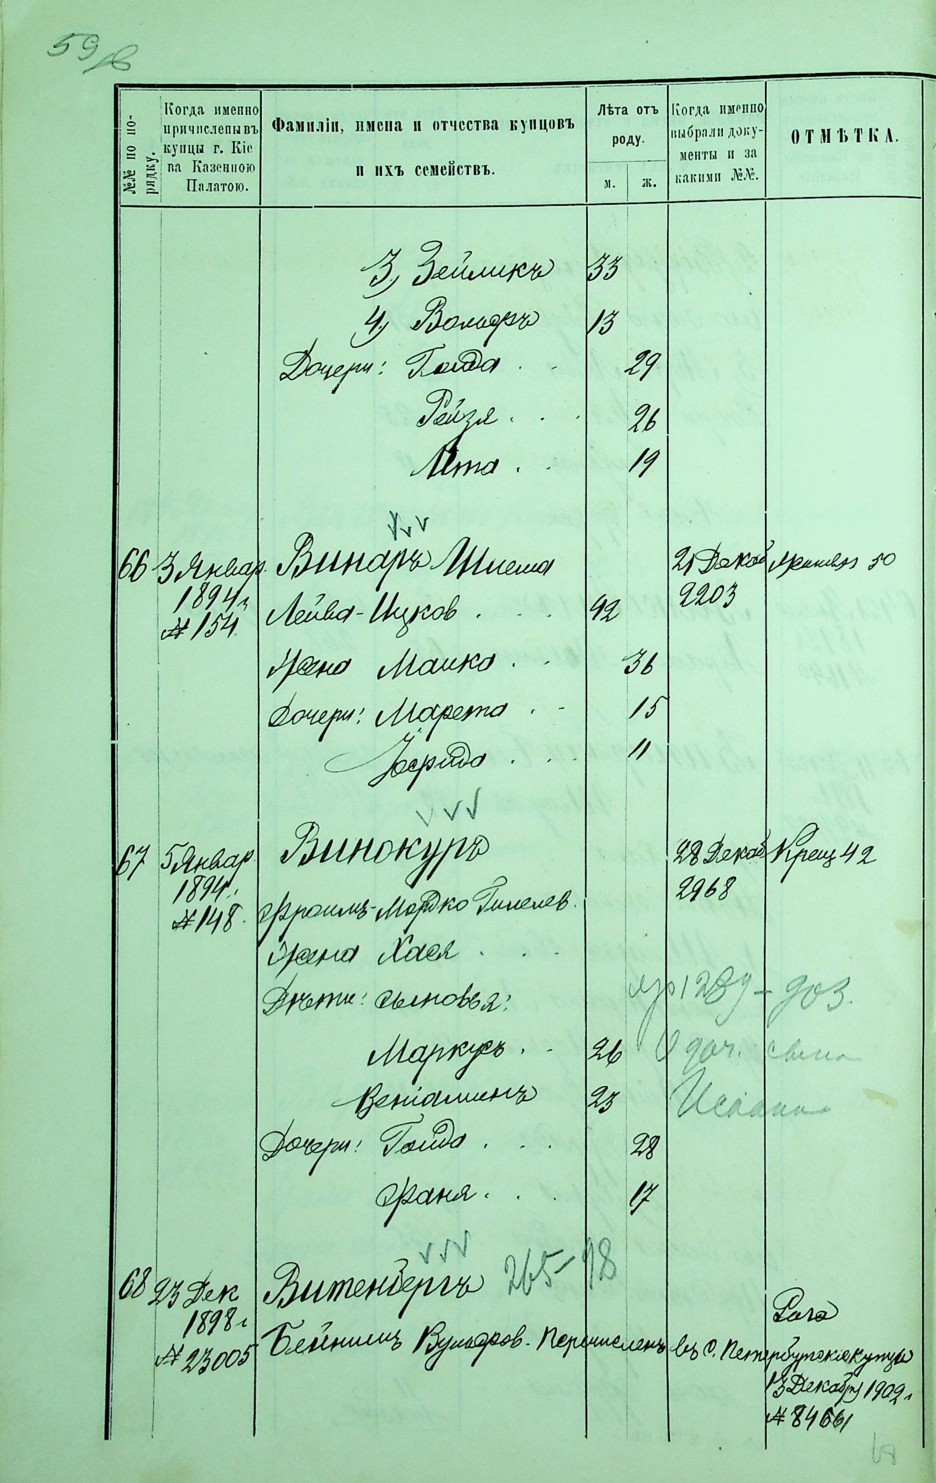 59
№№ по порядку.
Когда именно причислены въ купцы г. Кіева Казенною Палатою.
Фамиліи, имена и отчества купцовъ и ихъ семействъ.
Лѣта отъ роду.
м. ж.
Когда именно выбрали документы и за какими №№.
ОТМѢТКА.
3) Зейликъ 33
4) Вольфъ 13
Дочери: Голда 29
Рейзя 26
Лета 19
66 3 Январ. Винаръ Шлема 21 Декаб. 50
1894 г. Лейба-Ицков 42 2203
№ 154
Жена Малка 36
Дочери: Марета 15
11
67 5 Январ. Винокуръ 28 Декаб. Крещ 42
1894 г. 2968
№ 148. Фроимъ-Мордко Гилелев.
Жена Хася
Дѣти: сыновья:
Маркусъ 26
Веніаминъ 23
Дочери: Голда 28
Фаня 17
68 23 Дек Витенбергъ 265-98
1898 г.
№ 23005 Бейнишъ Вульфов. Перечисленъ въ С. Петербургскіе купцы
13 Декабря 1902 г.
№ 84661